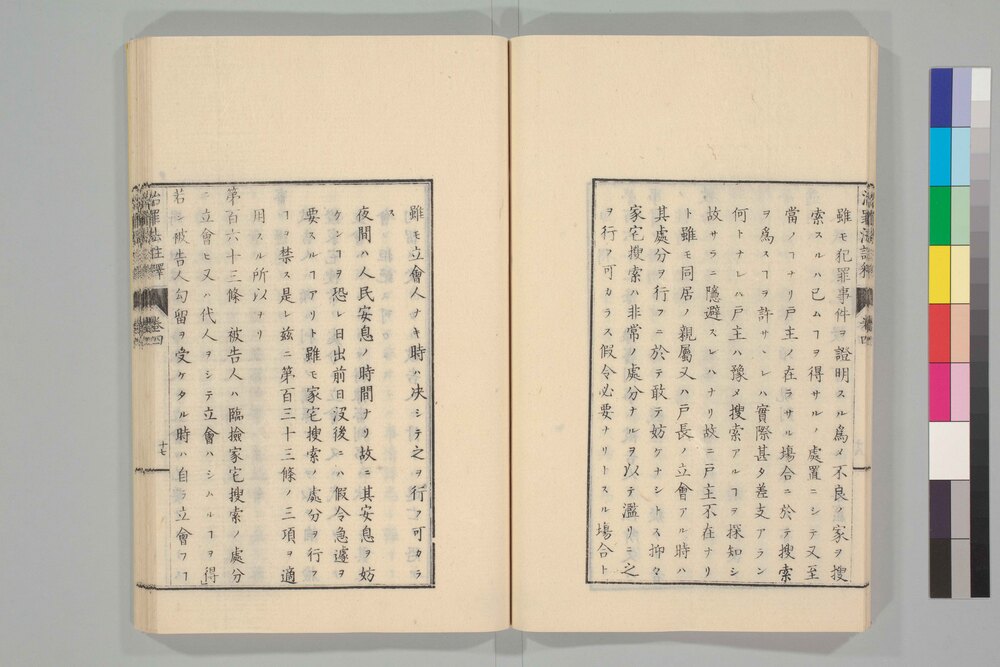 雖モ犯罪事件ヲ證明スル爲メ不良ノ家ヲ搜
索スルハ已ムヿヲ得サルノ處置ニシテ又至
當ノヿナリ戸主ノ在ラサル塲合ニ於テ搜索
ヲ爲スヿヲ許サヽレハ實際甚タ差支アラン
何トナレハ戸主ハ豫メ搜索アルヿヲ探知シ
故サラニ隱避スレハナリ故ニ戸主不在ナリ
ト雖モ同居ノ親屬又ハ戸長ノ立會アル時ハ
其處分ヲ行フニ於テ敢テ妨ケナシトス抑々
家宅搜索ハ非常ノ處分ナルヲ以テ濫リニ之
ヲ行フ可カラス假令必要ナリトスル塲合ト
雖モ立會人ナキ時ハ决シテ之ヲ行フ可カラ
ス
夜間ハ人民安息ノ時間ナリ故ニ其安息ヲ妨
ケンヿヲ恐レ日出前日沒後ニハ假令急遽ヲ
要スルヿアリト雖モ家宅搜索ノ處分ヲ行フ
ヿヲ禁ス是レ玆ニ第百三十三條ノ三項ヲ適
用スル所以ナリ
第百六十三條 被告人ハ臨撿家宅搜索ノ處分
ニ立會ヒ又ハ代人ヲシテ立會ハシムルヿヲ得」
若シ被告人勾留ヲ受ケタル時ハ自ラ立會フヿ
治罪法註釋 卷四 十七